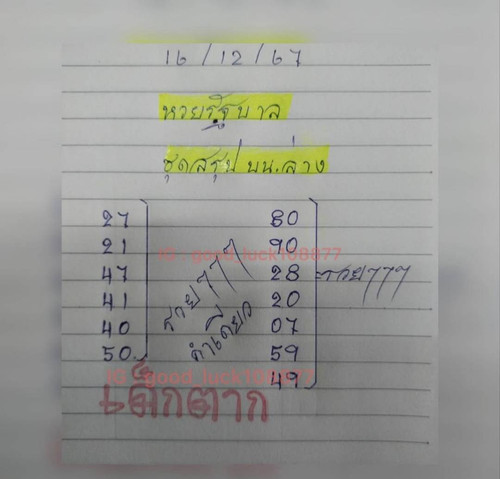 16/12/67
หวยรัฐบาล
ชุดสรุป บน.ล่าง
27
21
47
41
40
50
รวยๆๆๆ
คำเดียว
80
90
28
20
07
59
49
รวยๆๆๆ
IG : good_luck108877
IG : good_luck108877
เด็กตาก